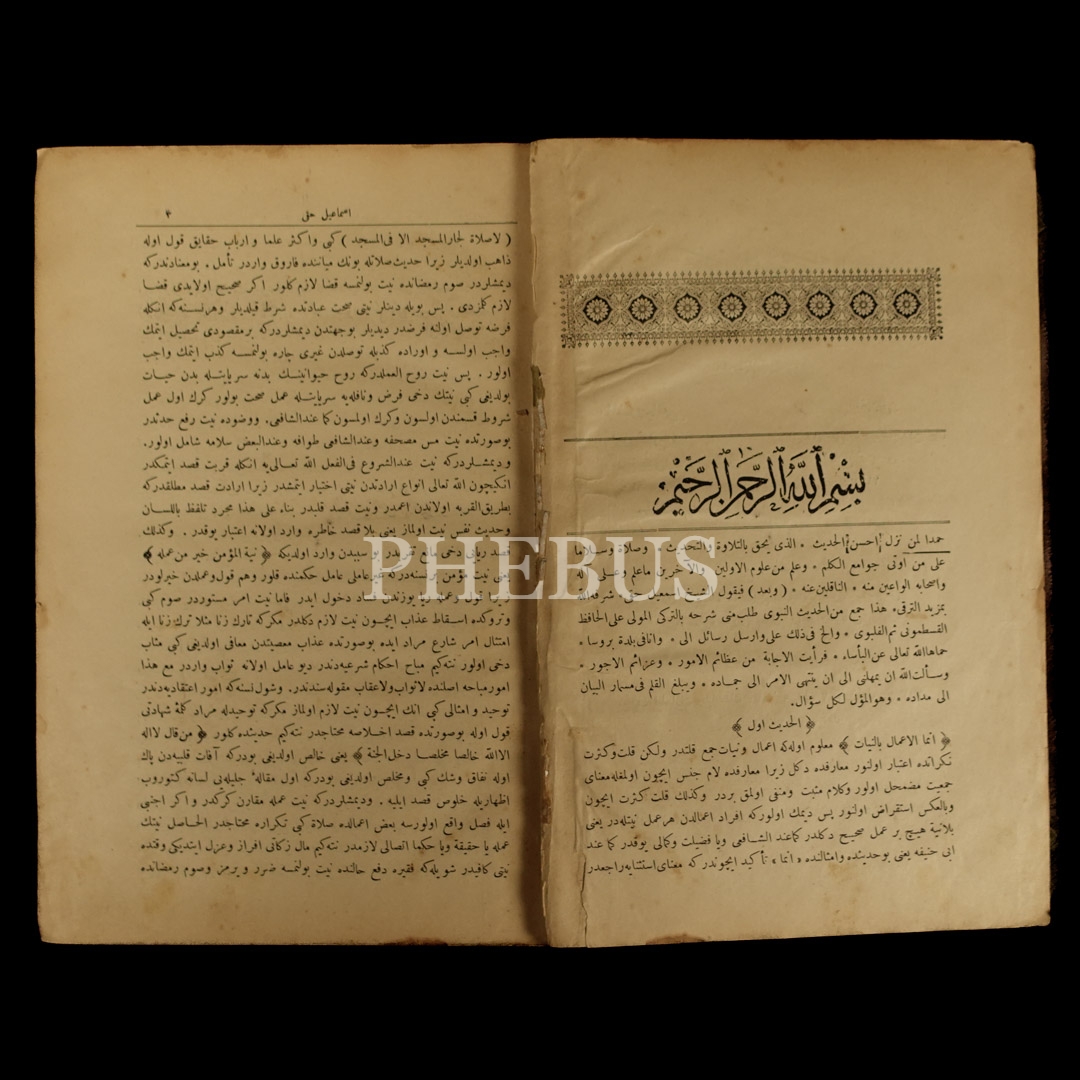 بسم الله الرحمن الرحيم
حمدا لمن نزل احسن الحديث * الذى يحق بالتلاوة والتحديث * وصلاة وسلاما
على من اوتى جوامع الكلم * وعلم من علوم الاولين والآخرين ماعلم وعلى آله
واصحابه الواعين منه * الناقلين عنه * ( وبعد ) فيقول الشيخ اسمعيل حقى شرفه الله
بمزيد الترقى * هذا جمع من الحديث النبوى طلب منى شرحه بالتركى المولى على الحافظ
القسطمونى ثم الفلبوى * والح فى ذلك على وارسل رسائل الى * وانا فى بلدة بروسا *
حماها الله تعالى عن البأساء * فرأيت الاجابة من عظائم الامور * وعزائم الاجور *
وسألت الله ان يمهلنى الى ان ينتهى الامر الى جماده * ويبلغ القلم فى مسمار البيان
الى مداده * وهو المؤل لكل سؤال.
﴿ الحديث اول ﴾
﴿ انما الاعمال بالنيات ﴾ معلوم اوله كه اعمال ونيات جمع قلتدر ولكن قلت وكثرت
نكراتده اعتبار اولنور معارفده دكل زيرا معارفده لام جنس ايچون اولمغله معناى
جمعيت مضمحل اولور وكلام مثبت ومنفى اولمق بردر وكذلك قلت كثرت ايچون
وبالعكس استقراض اولنور پس ديمك اولوركه افراد اعمالدن هر عمل نيتله در يعنى
بلانية هيچ بر عمل صحيح دكلدر كما عند الشافعى ويا فضيلت وكمالى يوقدر كما عند
ابى حنيفه يعنى بو حديثده وامثالنده « انما » تأكيد ايچوندر كه معناى استثنايه راجعدر
اسماعيل حقى ٣
( لاصلاة لجار المسجد الا فى المسجد ) كبى واكثر علما و ارباب حقايق قول اوله
ذاهب اولديلر زيرا حديث صلاتله بونك مياننده فاروق واردر تأمل . بو معنادندركه
ديمشلردر صوم رمضانده نيت بولنمسه قضا لازم كلور اكر صحيح اولايدى قضا
لازم كلمزدى . پس بويله دينلر نيتى صحت عبادتده شرط قيلديلر وهر نسنه كه انكله
فرضه توصل اولنه فرضدر ديديلر بوجهتدن ديمشلردركه بر مقصودى تحصيل ايتمك
واجب اولسه و اوراده كذبله توصلدن غيرى چاره بولنمسه كذب ايتمك واجب
اولور . پس نيت روح العملدركه روح حيوانينك بدنه سريانيله بدن حيات
بولديغى كبى نيتك دخى فرض ونافله يه سريانيله عمل صحت بولور كرك اول عمل
شروط قسمندن اولسون وكرك اولمسون كما عند الشافعى. ووضوده نيت رفع حدثدر
بو صورتده نيت مس مصحفه وعند الشافعى طوافه وعند البعض سلامه شامل اولور.
و ديمشلردركه نيت عند الشروع فى الفعل الله تعالى يه انكله قربت قصد ايتمكدر
انكيچون الله تعالى انواع ارادتدن نيتى اختيار ايتمشدر زيرا ارادت قصد مطلقدركه
بطريق القربه اولاندن اعمدر ونيت قصد قلبدر بناء على هذا مجرد تلفظ باللسان
وحديث نفس نيت اولماز يعنى بلا قصد خاطره وارد اولانه اعتبار يوقدر . وكذلك
قصد ريائى دخى مانع تقربدر بو سببدن وارد اولديكه ﴿ نية المؤمن خير من عمله ﴾
يعنى نيت مؤمن بر نسنه دركه غير عاملى عامل حكمنده قلور وهم قول وعملدن خيرلودر
زيرا قول وعمله ريا يوزندن فساد دخول ايدر فاما نيت امر مستوردر صوم كبى
وتروكده اسقاط عذاب ايچون نيت لازم دكلدر مكر كه تارك زنا مثلا ترك زنا ايله
امتثال امر شارع مراد ايده بو صورتده عذاب معصيتدن معافى اولديغى كبى مثاب
دخى اولور نته كيم مباح احكام شرعيه دندر ديو عامل اولانه ثواب واردر مع هذا
امور مباحه اصلنده لا ثواب ولا عقاب مقوله سندندر. وشول نسنه كه امور اعتقاديه دندر
توحيد و امثالى كبى انك ايچون نيت لازم اولماز مكر كه توحيدله مراد كلمۀ شهادتى
قول اوله بو صورتده قصد اخلاصه محتاجدر نته كيم حديثده كلور ﴿ من قال لااله
الا الله خالصا مخلصا دخل الجنة ﴾ يعنى خالص اولديغى بودركه آفات قلبيه دن پاك
اوله نفاق وشك كبى و مخلص اولديغى بودركه اول مقالۀ جليله يى لسانه كتوروب
اظهاريله خلوص قصد ايليه . وديمشلردركه نيت عمله مقارن كركدر و اكر اجنبى
ايله فصل واقع اولورسه بعض اعمالده صلاة كبى تكراره محتاجدر الحاصل نيتك
عمله يا حقيقة ويا حكما اتصالى لازمدر نته كيم مال زكاتى افراز وعزل ايتديكى وقتده
نيتى كافيدر شويله كه فقيره دفع حالنده نيت بولنمسه ضرر ويرمز وصوم رمضانده
PHEBUS